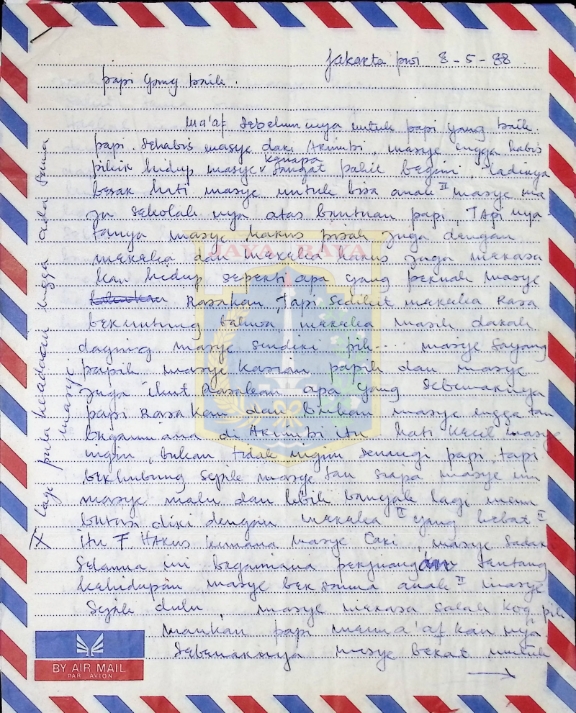 Jakarta 8-5-88
papi yang baik.
Ma'af sebelumnya untuk papi yang baik.
papi. sehabis masye dari masye engga habis
pikir hidup masye kenapa sangat pahit begini. Tadinya
besar hati masye untuk bisa anak II masye
sekolah nya atas bantuan papi, TApi nya-
tanya masye harus pisah juga dengan
mereka dan mereka harus juga merasa-
kan hidup seperti apa yang pernah masye
Rasakan, tapi sedikit mereka Rasa
beruntung bahwa mereka masih darah
daging masye sendiri pih... masye sayang
papih masye kasian papih dan masye
juga ikut Rasakan apa yang sebenarnya
papi Rasakan dan bukan masye engga tau
bagaimana di itu hati kecil masye
ingin, bukan tidak ingin papi, tapi
berhubung sejak masye tau siapa masye ini
masye malu dan lebih banyak lagi
diri dengan mereka II yang hebat II
itu ? HArus kemana masye cari, masye sadar
Selama ini bagaimana perjuangan tentang
kehidupan masye bersama anak II masye
Sejak dulu, masye merasa salah koq, pih
Maukan papi mema'afkan nya
Sebenarnya masye berat untuk
X lagi pula keadaan engga ada sama
masye
BY AIR MAIL
PAR AVION
JAYA RAYA